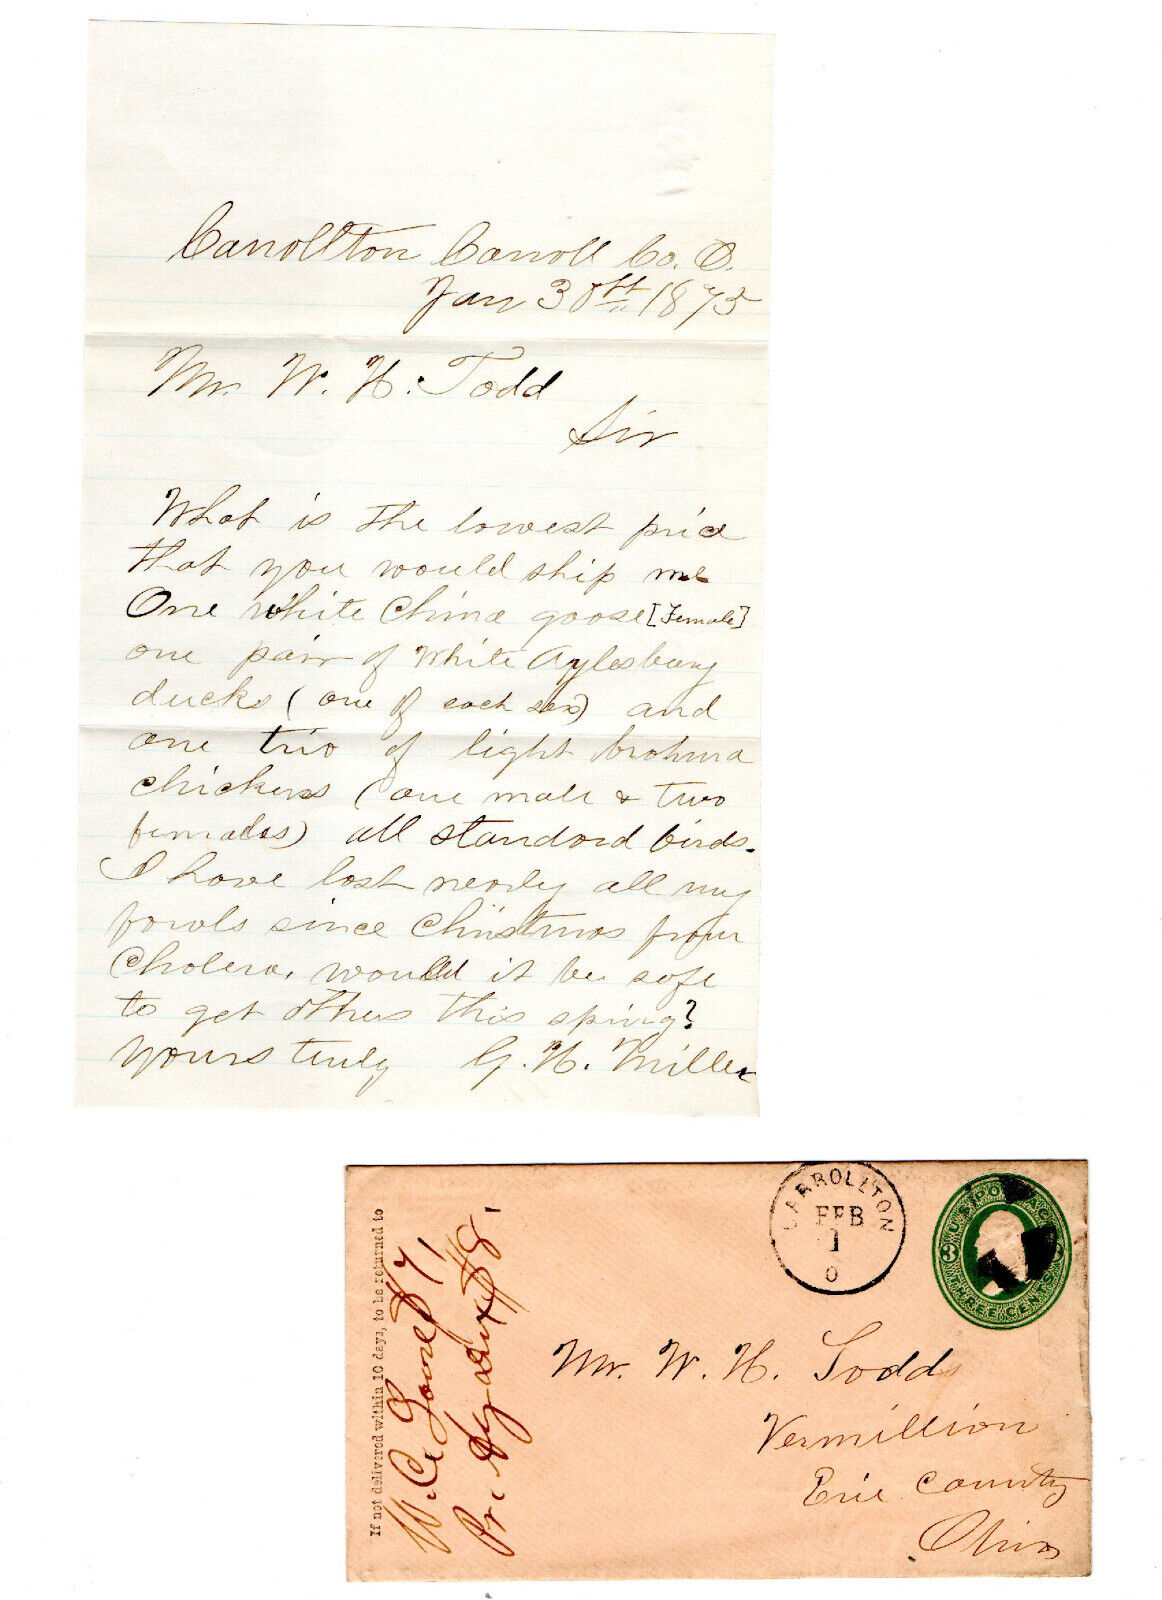 Carrollton Carroll Co. O.
Jan 30th 1875
Mr. W. H. Todd
Sir
What is the lowest price
that you would ship me
One white China goose [Female]
one pair of White Aylesbury
ducks (one of each sex) and
one trio of light brahma
chickens (one male & two
females) all standard birds.
I have lost nearly all my
fowls since Christmas from
Cholera. would it be safe
to get others this spring?
Yours truly G. H. Miller
CARROLLTON
FEB
1
O
U.S. POSTAGE
3
THREE CENTS
Mr. W. H. Todd
Vermillion
Erie County
Ohio
If not delivered within 10 days, to be returned to
W. C. Goose $7,
Pr. $8,